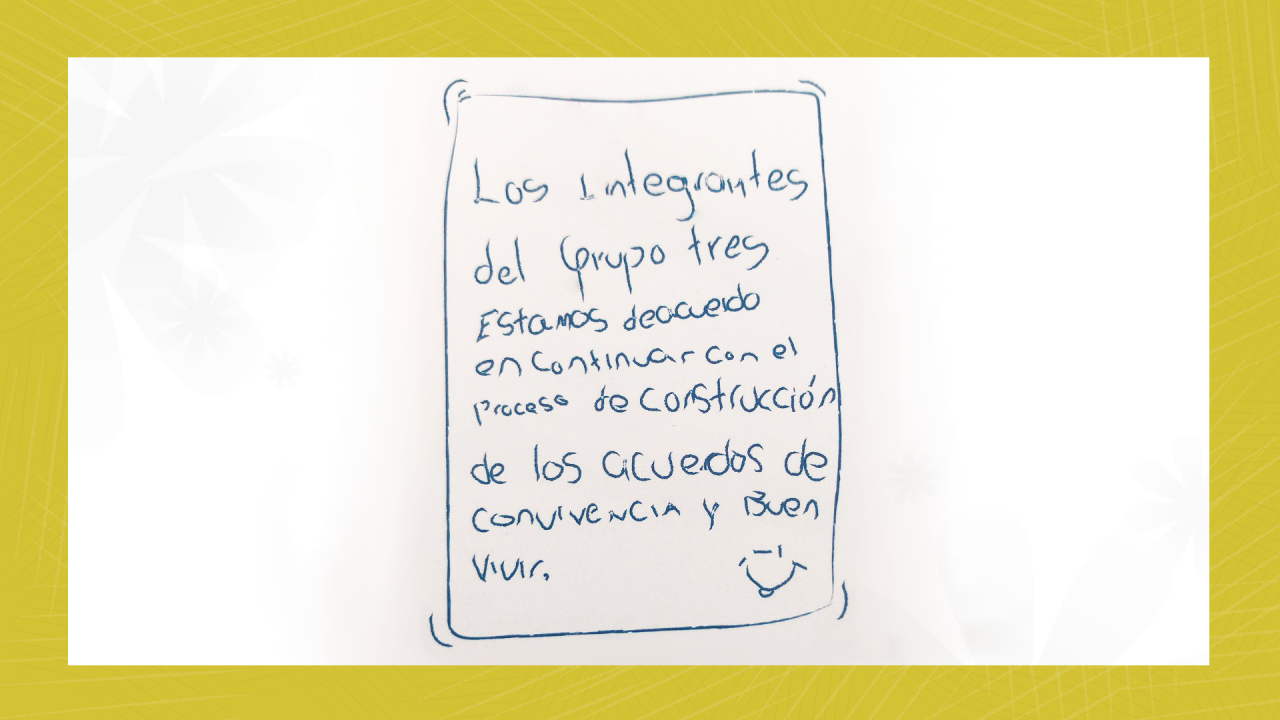 Los Integrantes
del Grupo tres
Estamos deacuerdo
en Continuar con el
proceso de Construcción
de los acuerdos de
convivencia y Buen
vivir.